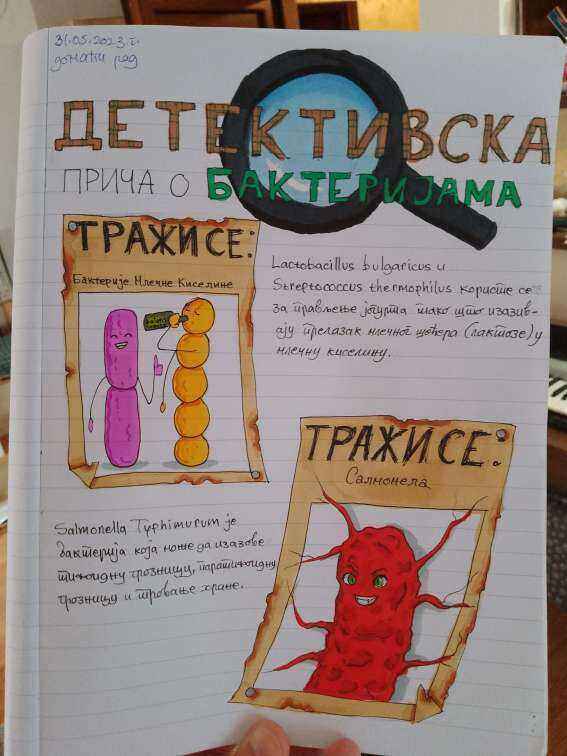 31.05.2023.г.
домаћи рад
ДЕТЕКТИВСКА
ПРИЧА О БАКТЕРИЈАМА
ТРАЖИ СЕ:
Бактерије Млечне Киселине
Lactobacillus bulgaricus и
Streptococcus thermophilus користе се
за прављење јогурта тако што изазив-
ају прелазак млечног шећера (лактозе) у
млечну киселину.
ТРАЖИ СЕ:
Салмонела
Salmonella Typhimurum је
бактерија која може да изазове
тифоидну грозницу, паратифоидну
грозницу и тровање хране.